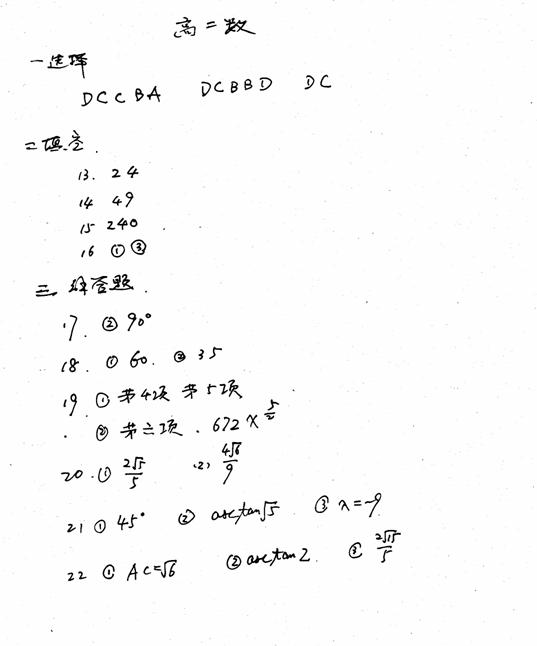 高二数
一选择
DCCBA DCBBD DC
二填空.
13. 24
14 49
15 240
16 ①③
三 解答题.
17. ② 90°
18. ① 60. ② 35
19 ① 第4项 第5项
. ② 第六项. 672 x^(5/2)
20.① 2√5/5 (2) 4√6/9
21 ① 45° ② arctan√5 ③ λ=-9
22 ① AC=√6 ② arctan2. ③ 2√15/5